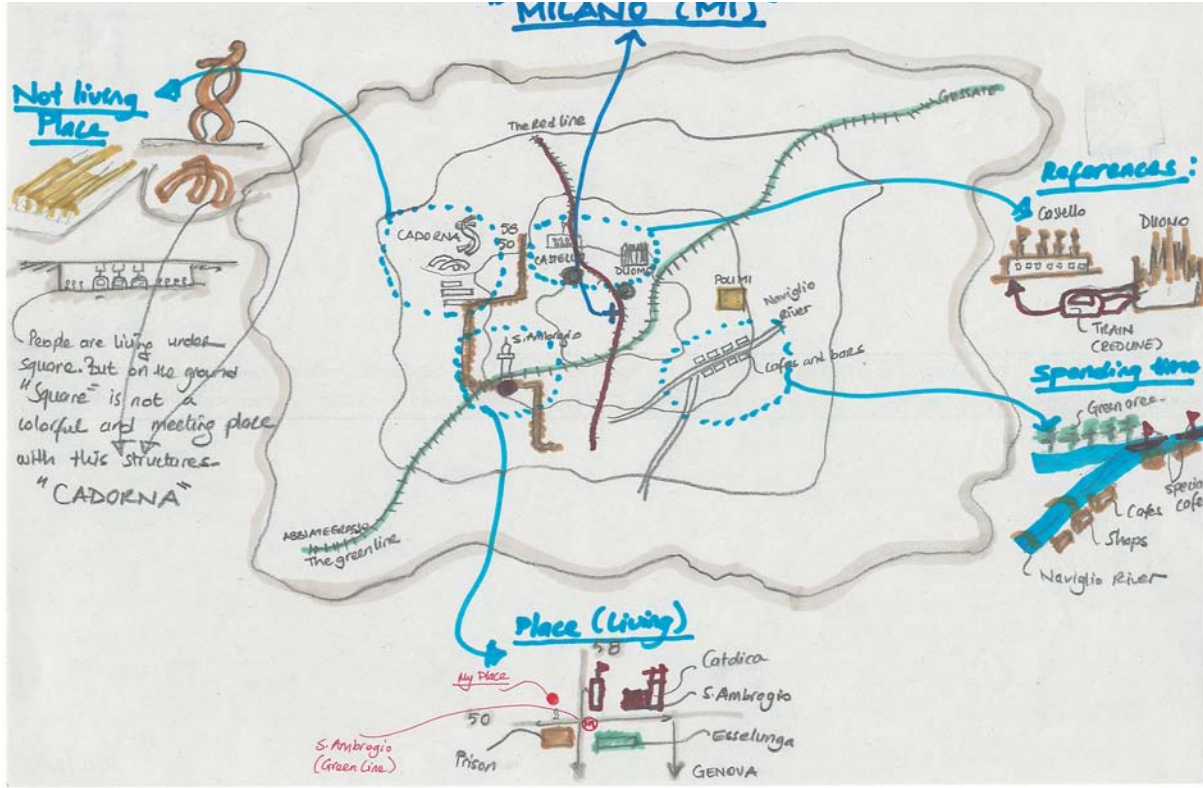 "MILANO (MI)"
Not living
Place
People are living under
square. But on the ground
"Square" is not a
colorful and meeting place
with this structures.
"CADORNA"
The Red line
GESSATE
CADORNA
58
50
CASTELLO
DUOMO
POLIMI
Naviglio
River
S. Ambrogio
Cafes and bars
ABBIATEGRASSO
The green line
References:
Castello
DUOMO
TRAIN
(REDLINE)
Spending time
Green area
Special
cafes
Cafes
Shops
Naviglio River
Place (Living)
58
My Place
50
M
S. Ambrogio
(Green Line)
Prison
Catolica
S. Ambrogio
Esselunga
GENOVA